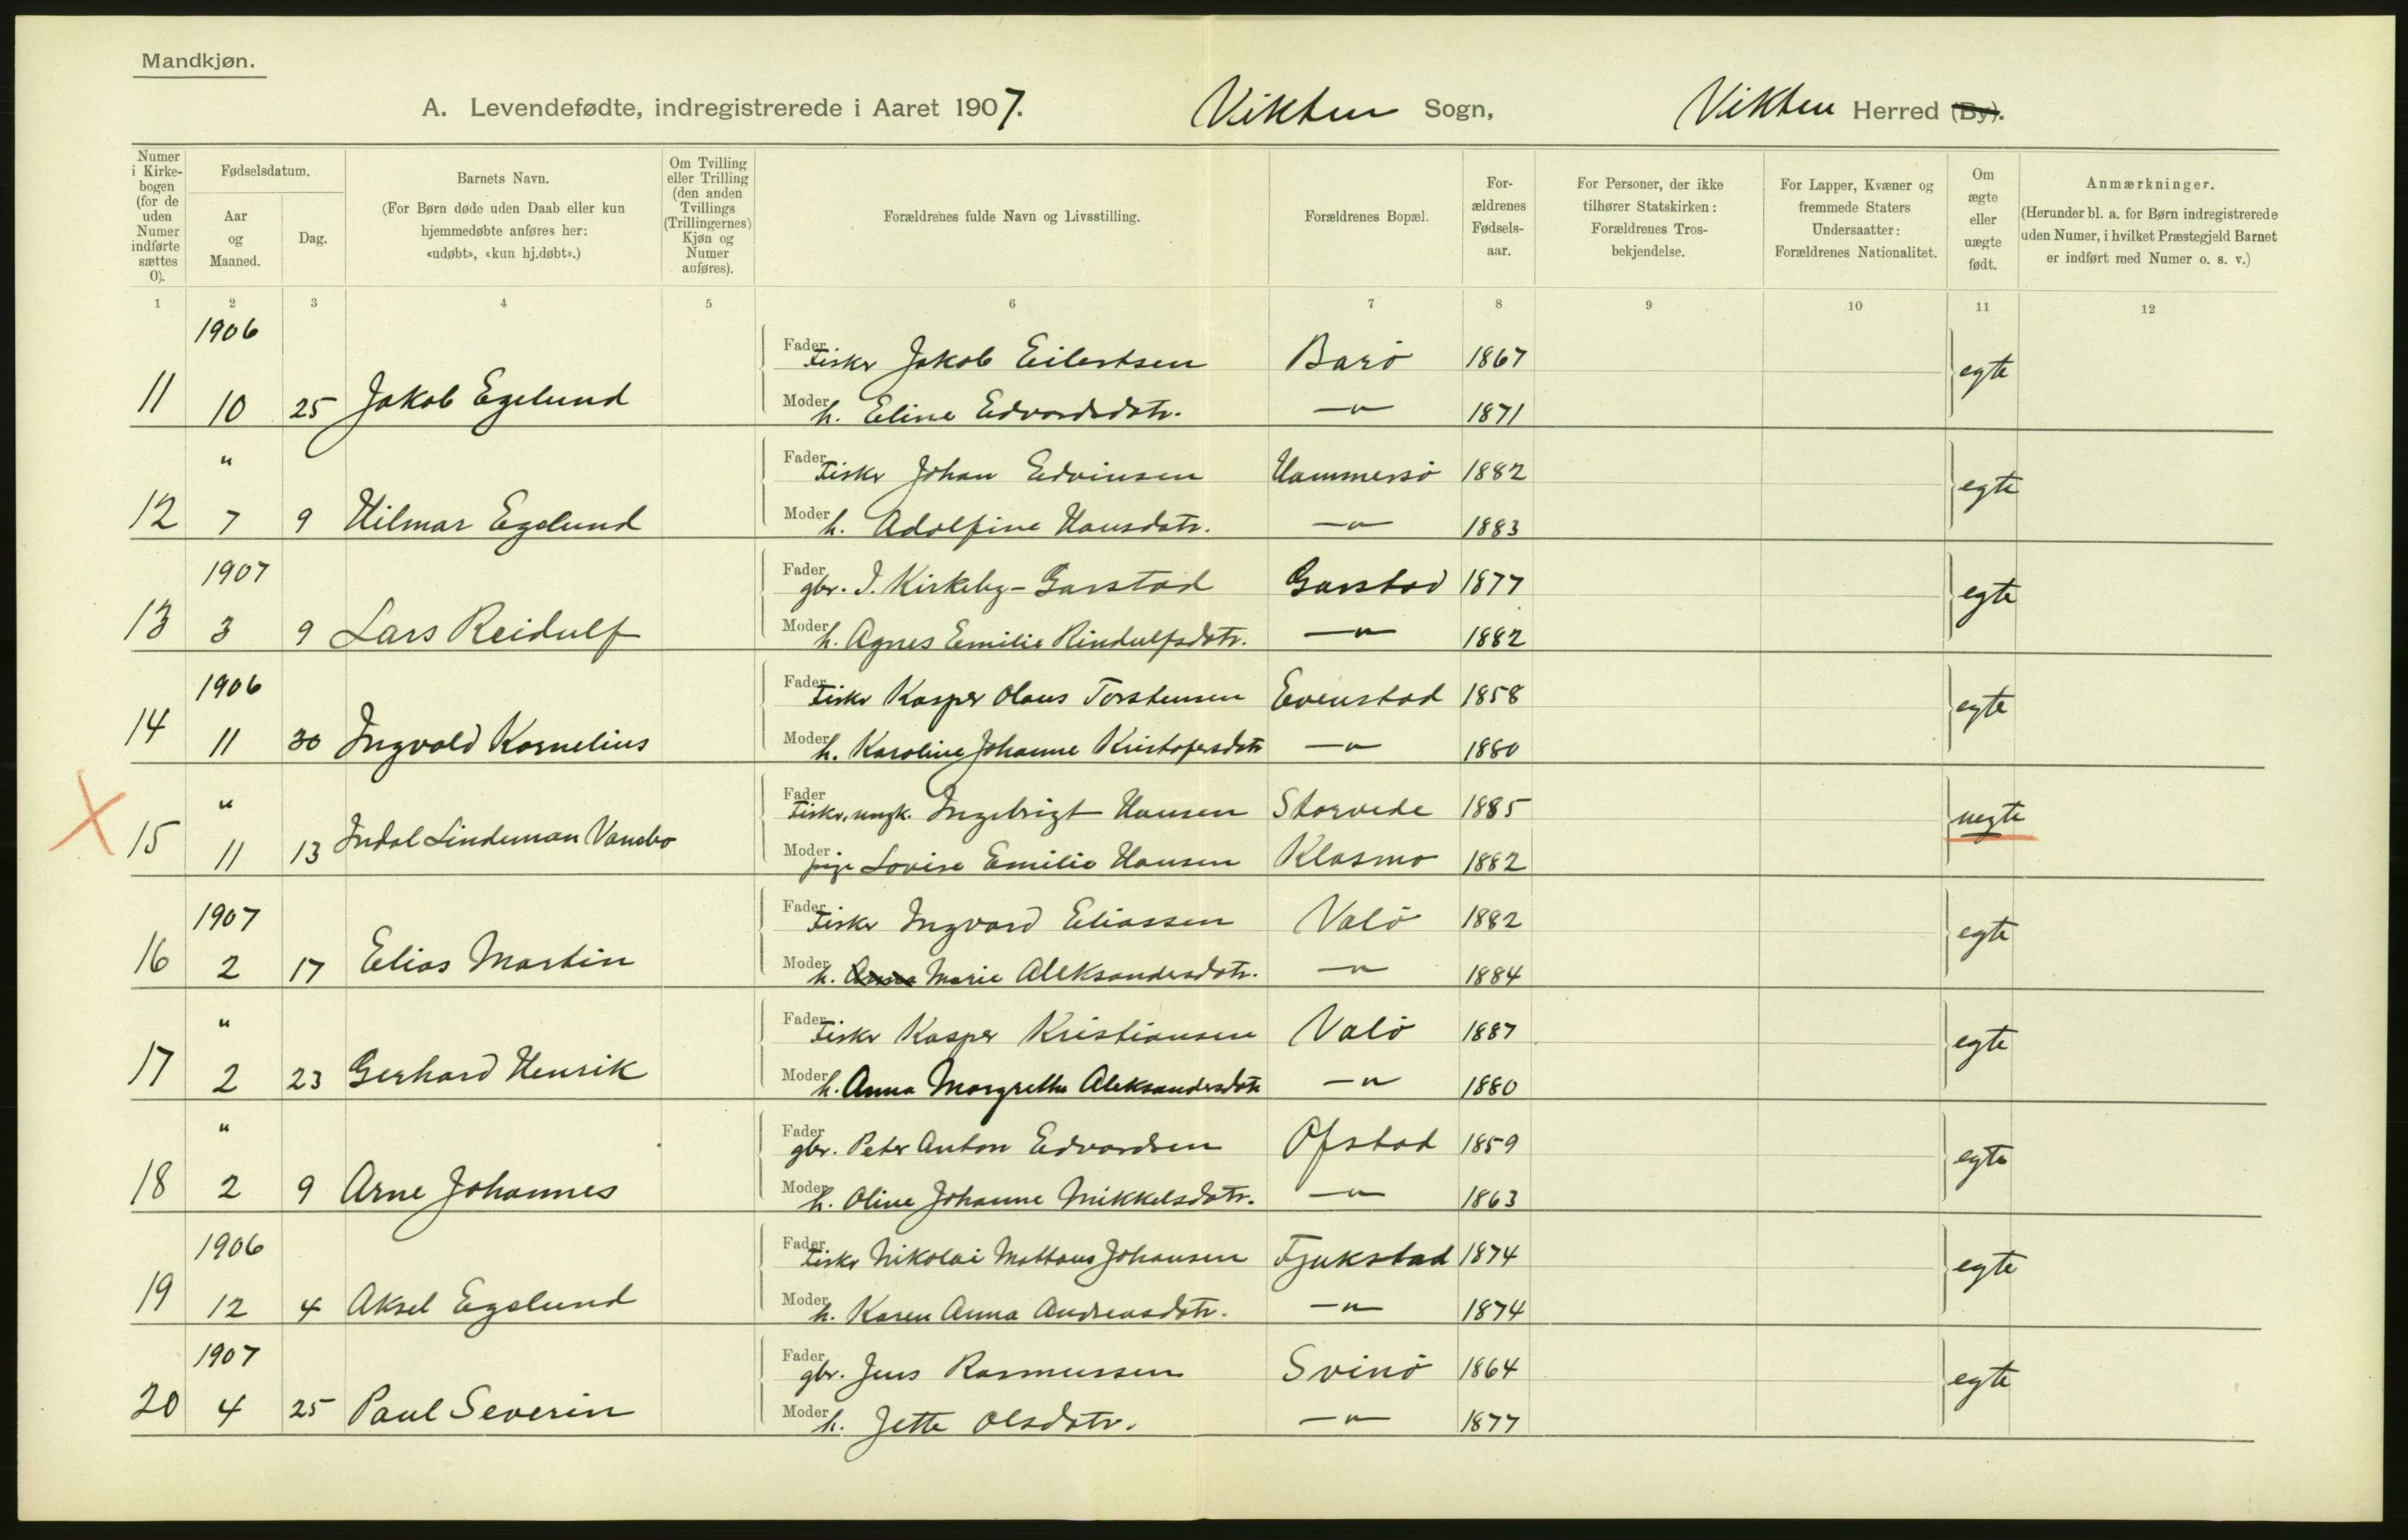 Mandkjøn.
A. Levendefødte, indregistrerede i Aaret 1907. Vikten Sogn, Vikten Herred (By).
Numer i Kirkebogen (for de uden Numer indførte sættes 0). Fødselsdatum. Aar og Maaned. Dag. Barnets Navn. (For Børn døde uden Daab eller kun hjemmedøbte anføres her: «udøbt», «kun hj.døbt».) Om Tvilling eller Trilling (den anden Tvillings (Trillingernes) Kjøn og Numer anføres). Forældrenes fulde Navn og Livsstilling. Forældrenes Bopæl. Forældrenes Fødselsaar. For Personer, der ikke tilhører Statskirken: Forældrenes Trosbekjendelse. For Lapper, Kvæner og fremmede Staters Undersaatter: Forældrenes Nationalitet. Om ægte eller uægte født. Anmærkninger. (Herunder bl. a. for Børn indregistrerede uden Numer, i hvilket Præstegjeld Barnet er indført med Numer o. s. v.)
1 2 3 4 5 6 7 8 9 10 11 12
1906
Fader Fisker Jakob Eilertsen Barö 1867 egte
11 10 25 Jakob Egelund Moder h. Eline Edvardsdatr. —"— 1871
" Fader Fisker Johan Edvinsen Hammersö 1882 egte
12 7 9 Hilmar Egelund Moder h. Adolfine Hansdatr. —"— 1883
1907 Fader gbr. I. Kirkeby-Garstad Garstad 1877 egte
13 3 9 Lars Reidulf Moder h. Agnes Emilie Rindulfsdatr. —"— 1882
1906 Fader Fisker Kasper Olaus Torstensen Evenstad 1858 egte
14 11 30 Ingvald Kornelius Moder h. Karoline Johanne Kristofersdatr —"— 1880
" Fader Fisker, ungk. Ingebrigt Hansen Storvede 1885 uegte
15 11 13 Indal Lindeman Vansbo Moder pige Lovise Emilie Hansen Klasmo 1882
1907 Fader Fisker Ingvard Eliassen Valö 1882 egte
16 2 17 Elias Martin Moder h. Anna Marie Aleksandersdatr. —"— 1884
" Fader Fisker Kasper Kristiansen Valö 1887 egte
17 2 23 Gerhard Henrik Moder h. Anna Margrethe Aleksandersdatr —"— 1880
" Fader gbr. Peter Anton Edvardsen Ofstad 1859 egte
18 2 9 Arne Johannes Moder h. Oline Johanne Mikkelsdatr. —"— 1863
1906 Fader Fisker Nikolai Mattæus Johansen Fjukstad 1874 egte
19 12 4 Aksel Egelund Moder h. Karen Anna Andreasdatr. —"— 1874
1907 Fader gbr. Jens Rasmussen Svinö 1864 egte
20 4 25 Paul Severin Moder h. Jette Olsdatr. —"— 1877